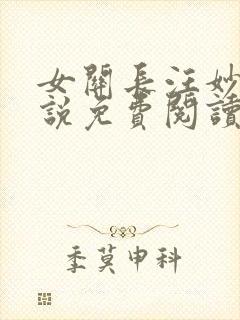 女關長汪妙
說免費閱讀
季莫申科